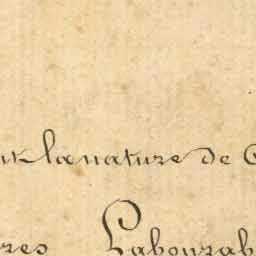 la nature de
Labourab